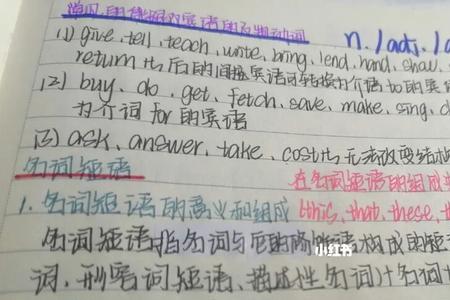 常见的能接双宾语的及物动词
n. / adj. /
(1) give、tell、teach、write、bring、lend、hand、show、
return 等后的间接宾语可转换为介语 to 的宾
(2) buy、do、get、fetch、save、make、sing、
为介词 for 的宾语
(3) ask、answer、take、cost 等 无法改变结构
名词短语
在名词短语的组成中
1. 名词短语的意义和组成 (this, that, these,
小红书
名词短语指名词与它的修饰语构成的短
词、形容词短语、描述性名词 (名词